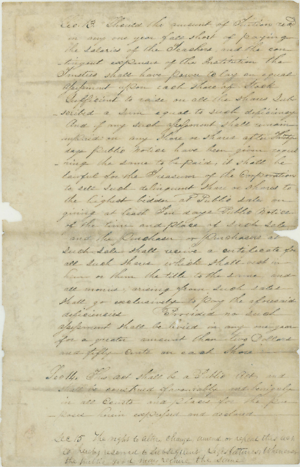 Sec. 3 Should the amount of Tuition
in any one year fall short of paying
the salaries of the Teachers and the con
tingent expenses of the Institution the
Trustees shall have power to lay an equal
assessment upon each share of Stock
Sufficient to raise on all the shares Sub
scribed a sum equal to such deficiency
And if any such assessment shall remain
unpaid on any Share or Shares after thirty
days public notice have been given requi
ring the same to be paid, it shall be
lawful for the Treasurer of the Corporation
to sell Such delinquent Share or Shares to
the highest bidder at Public sale on
giving at least Ten days Public notice
of the time and place of Such Sale
and the Purchaser or Purchasers at
Such Sale shall receive a certificate for
all Such Shares which shall vest in
him or them the title to the same and
all monies arising from Such sales
shall go exclusively to pay the aforesaid
deficiencies Provided no Such
assessment shall be levied in any one year
for a greater amount than two Dollars
and fifty Cents on each Share
This act Shall be a Public Act and
shall be construed favorably and
in all Courts and Places for the
Sec. 5. The right to alter change amend or repeal this act
is hereby reserved to Legislature whenever
the public good may require the same